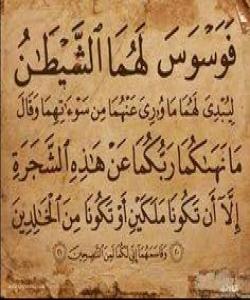 فَوَسْوَسَ لَهُمَا الشَّيْطَٰنُ
لِيُبْدِيَ لَهُمَا مَا وُۥرِيَ عَنْهُمَا مِن سَوْءَٰتِهِمَا وَقَالَ
مَا نَهَىٰكُمَا رَبُّكُمَا عَنْ هَٰذِهِ الشَّجَرَةِ
إِلَّآ أَن تَكُونَا مَلَكَيْنِ أَوْ تَكُونَا مِنَ الْخَٰلِدِينَ
٢٠ وَقَاسَمَهُمَآ إِنِّي لَكُمَا لَمِنَ النَّٰصِحِينَ ٢١